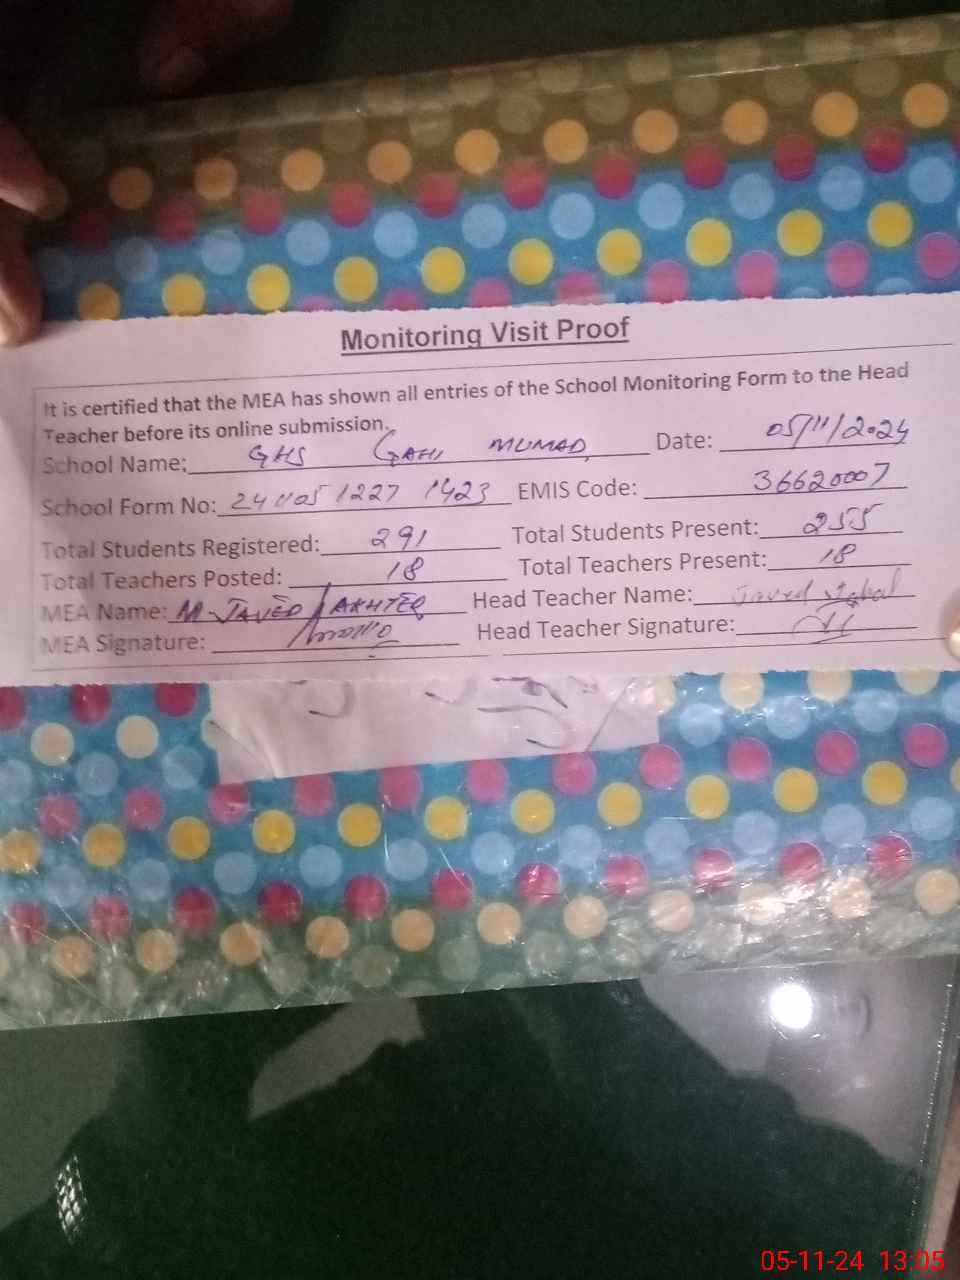 Monitoring Visit Proof
It is certified that the MEA has shown all entries of the School Monitoring Form to the Head
Teacher before its online submission.
School Name: GHS GAHI MUMAD Date: 05/11/2024
School Form No: 241105 1227 1423 EMIS Code: 36620007
Total Students Registered: 291 Total Students Present: 255
Total Teachers Posted: 18 Total Teachers Present: 18
MEA Name: M JAVED AKHTER Head Teacher Name: Javed Iqbal
MEA Signature: Head Teacher Signature:
05-11-24 13:05